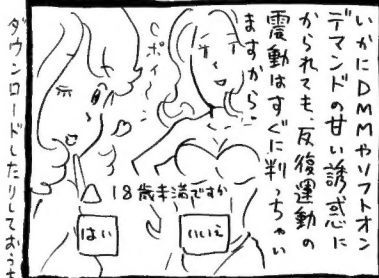 いかにDMMやソフトオン
デマンドの甘い誘惑に
かられても、反復運動の
震動はすぐに判っちゃい
ますから。
ポイ〜
18歳未満ですか
はい
いいえ
ダウンロードしたりしておうち